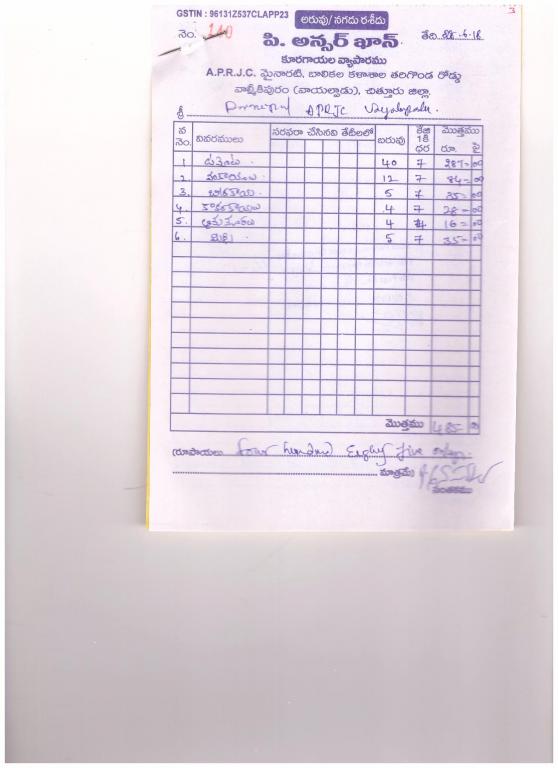 GSTIN : 96131Z537CLAPP23
అరువు/నగదు రశీదు
నెం. 140
తేది
పి. అన్సర్ ఖాన్.
కూరగాయల వ్యాపారము
A.P.R.J.C. మైనారటీ, బాలికల కళాశాల తరిగొండ రోడ్డు
వాల్మీకిపురం (వాయల్పాడు), చిత్తూరు జిల్లా.
శ్రీ Principal APRJC Vayalpadu.
వ నెం. వివరములు సరఫరా చేసినవి తేదీలలో బరువు కేజి 1కి ధర మొత్తము రూ. పై
1 టమోటా 40 7 287=00
2 వంకాయలు 12 7 84=00
3. 5 7 35=00
4. కాకరకాయలు 4 7 28=00
5. 4 4 16=00
6. మిర్చి 5 7 35=00
మొత్తము 485=00
(రూపాయలు four hundred Eighty five only.
మాత్రమే)
సంతకము